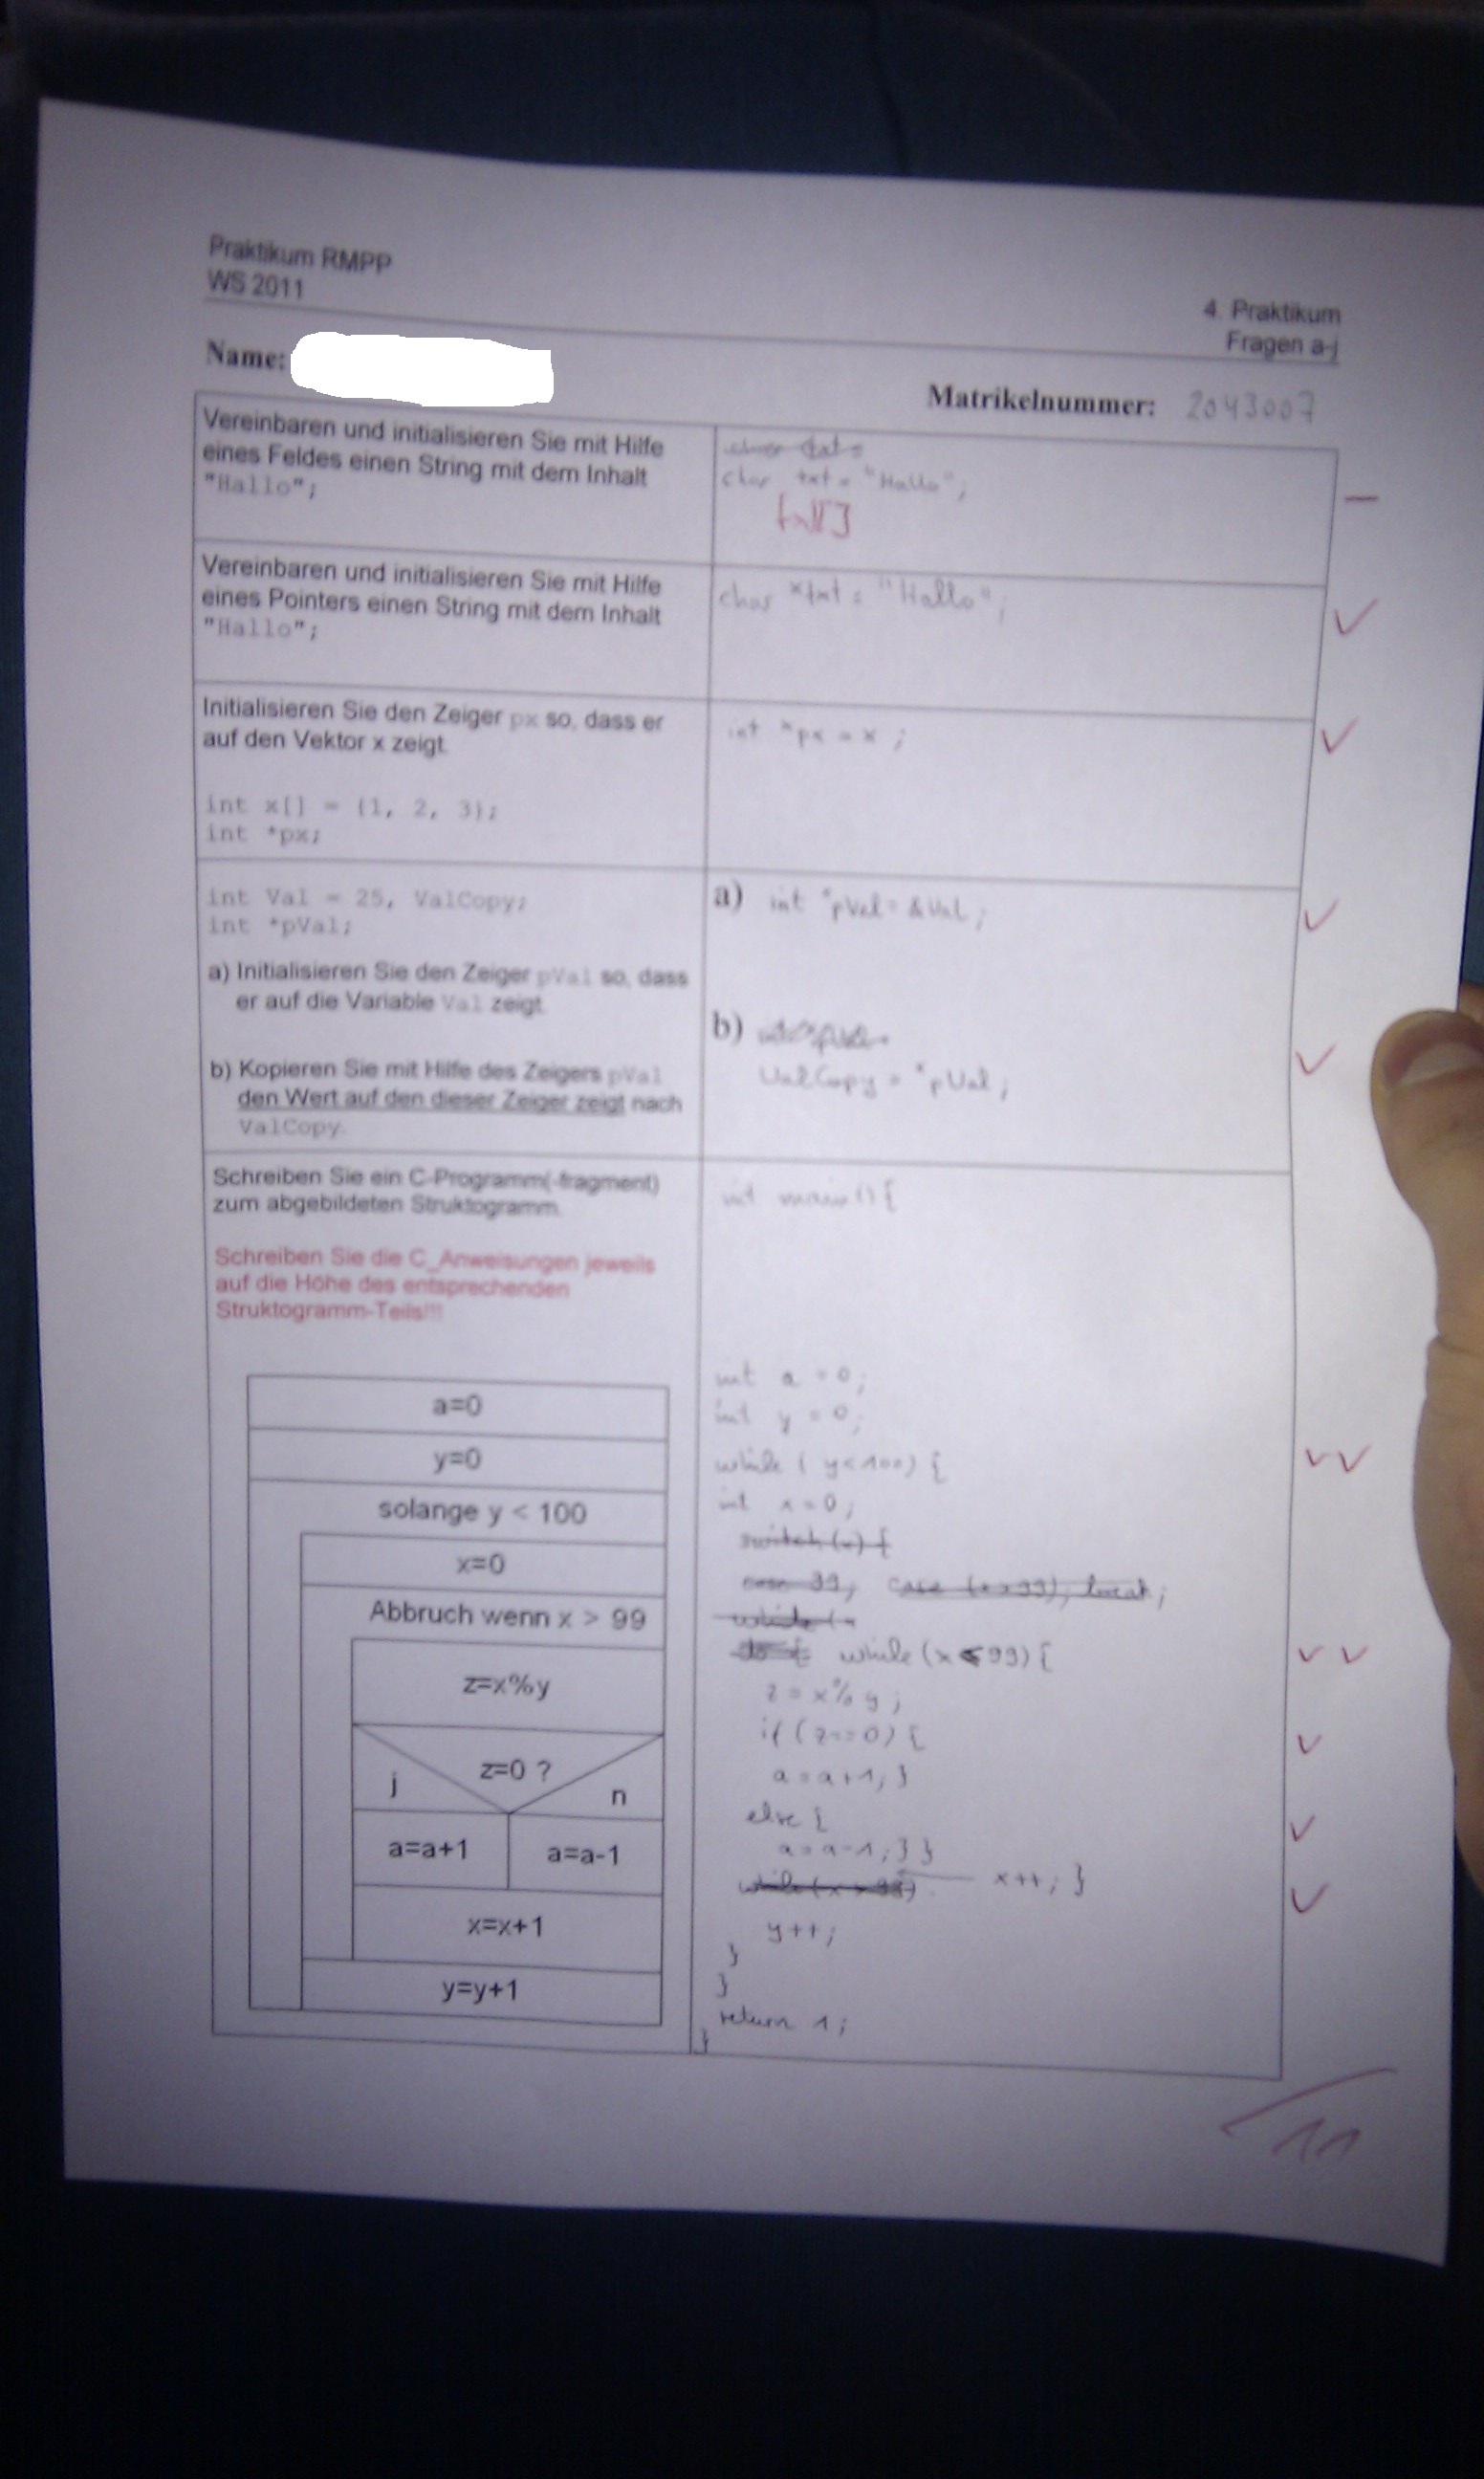 Praktikum RMPP
WS 2011
4. Praktikum
Fragen a-j
Name:
Matrikelnummer: 2043007
Vereinbaren und initialisieren Sie mit Hilfe
eines Feldes einen String mit dem Inhalt
"Hallo";
char txt =
char txt = "Hallo";
txt[]
Vereinbaren und initialisieren Sie mit Hilfe
eines Pointers einen String mit dem Inhalt
"Hallo";
char *txt = "Hallo";
Initialisieren Sie den Zeiger px so, dass er
auf den Vektor x zeigt.
int x[] = {1, 2, 3};
int *px;
int *px = x ;
int Val = 25, ValCopy;
int *pVal;
a) Initialisieren Sie den Zeiger pVal so, dass
er auf die Variable Val zeigt.
b) Kopieren Sie mit Hilfe des Zeigers pVal
den Wert auf den dieser Zeiger zeigt nach
ValCopy.
a) int *pVal = &Val ;
b)
ValCopy = *pVal ;
Schreiben Sie ein C-Programm(-fragment)
zum abgebildeten Struktogramm.
Schreiben Sie die C_Anweisungen jeweils
auf die Höhe des entsprechenden
Struktogramm-Teils!!!
a=0
y=0
solange y < 100
x=0
Abbruch wenn x > 99
z=x%y
z=0 ?
j
n
a=a+1
a=a-1
x=x+1
y=y+1
int main() {
int a = 0;
int y = 0;
while ( y<100) {
int x = 0 ;
switch (x) {
case 99, case (x>99), break;
while (x
do { while (x≤99) {
z = x % y ;
if (z==0) {
a = a+1; }
else {
a = a-1; } }
while (x > 99) x++; }
y++;
}
}
return 1;
}
11